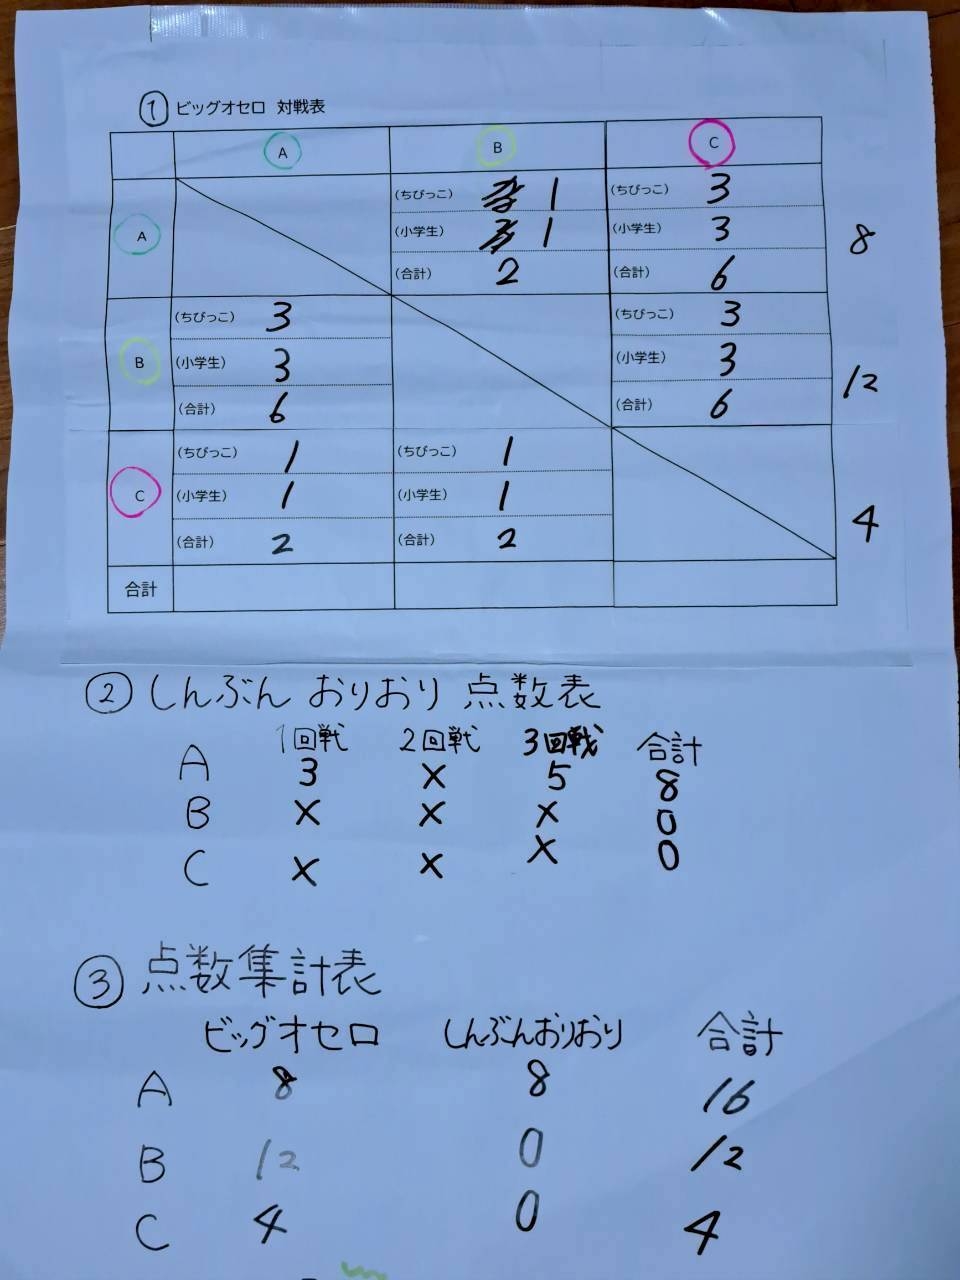 ① ビッグオセロ 対戦表
A B C
(ちびっこ) 1 (ちびっこ) 3
A (小学生) 1 (小学生) 3 8
(合計) 2 (合計) 6
(ちびっこ) 3 (ちびっこ) 3
B (小学生) 3 (小学生) 3 12
(合計) 6 (合計) 6
(ちびっこ) 1 (ちびっこ) 1
C (小学生) 1 (小学生) 1 4
(合計) 2 (合計) 2
合計
② しんぶん おりおり 点数表
1回戦 2回戦 3回戦 合計
A 3 × 5 8
B × × × 0
C × × × 0
③ 点数集計表
ビッグオセロ しんぶんおりおり 合計
A 8 8 16
B 12 0 12
C 4 0 4